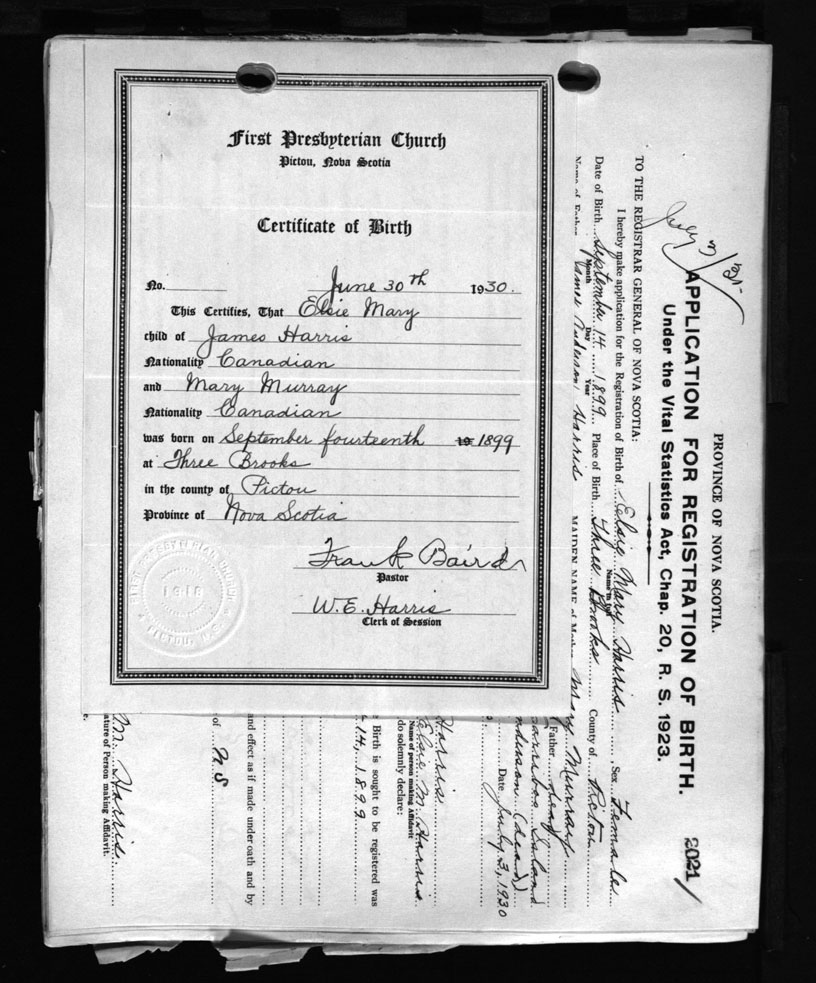 First Presbyterian Church
Pictou, Nova Scotia
Certificate of Birth
No. June 30th 1930.
This Certifies, That Elsie Mary
child of James Harris
Nationality Canadian
and Mary Murray
Nationality Canadian
was born on September fourteenth 19 1899
at Three Brooks
in the county of Pictou
Province of Nova Scotia
Frank Baird
Pastor
W. E. Harris
Clerk of Session
1918
PROVINCE OF NOVA SCOTIA.
APPLICATION FOR REGISTRATION OF BIRTH.
2021
Under the Vital Statistics Act, Chap. 20, R. S. 1923.
July
TO THE REGISTRAR GENERAL OF NOVA SCOTIA:
I hereby make application for the Registration of Birth of Elsie Mary Harris, Sex Female
Name in full
Date of Birth September 14 1899 Place of Birth Three Brooks County of Pictou
Month Day Year
Name of Father James Anderson Harris MAIDEN NAME of Mother Mary Murray
Father dead
Island
(dead)
Date July 3, 1930
Harris
Elsie M. Harris
Name of person making Affidavit
do solemnly declare:
Birth is sought to be registered was
14, 1899
and effect as if made under oath and by
of N S
M. Harris
ature of Person making Affidavit.